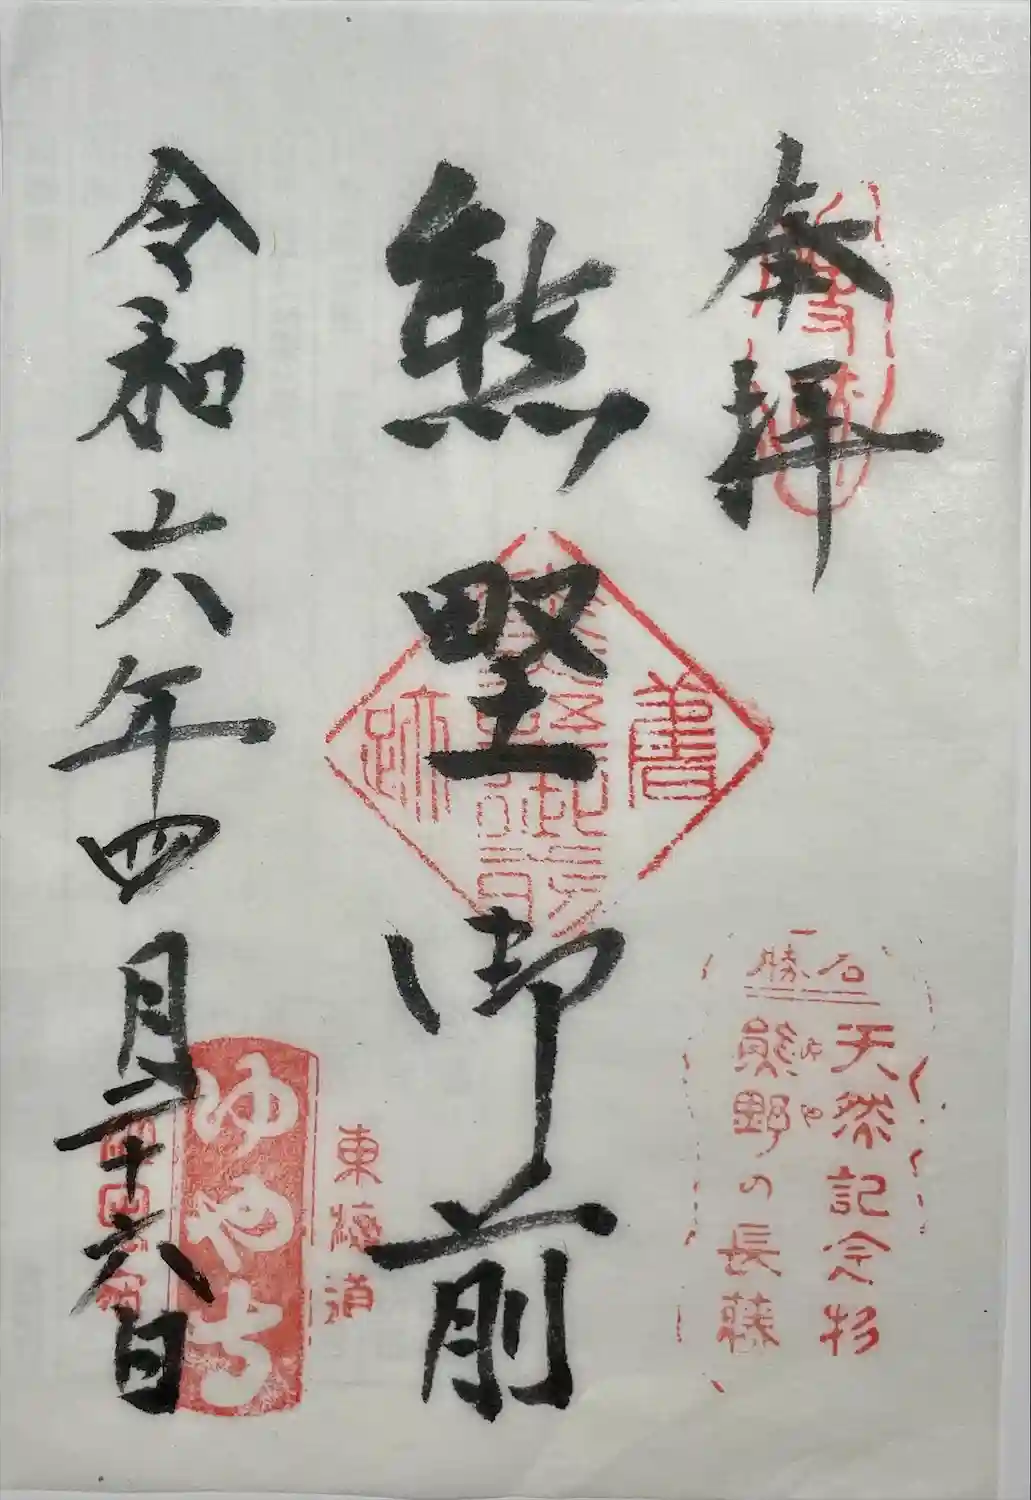 奉拝
熊野御前
令和六年四月二十六日
舊
跡
名勝
天然記念物
熊野の長藤
東海道
ゆやでら